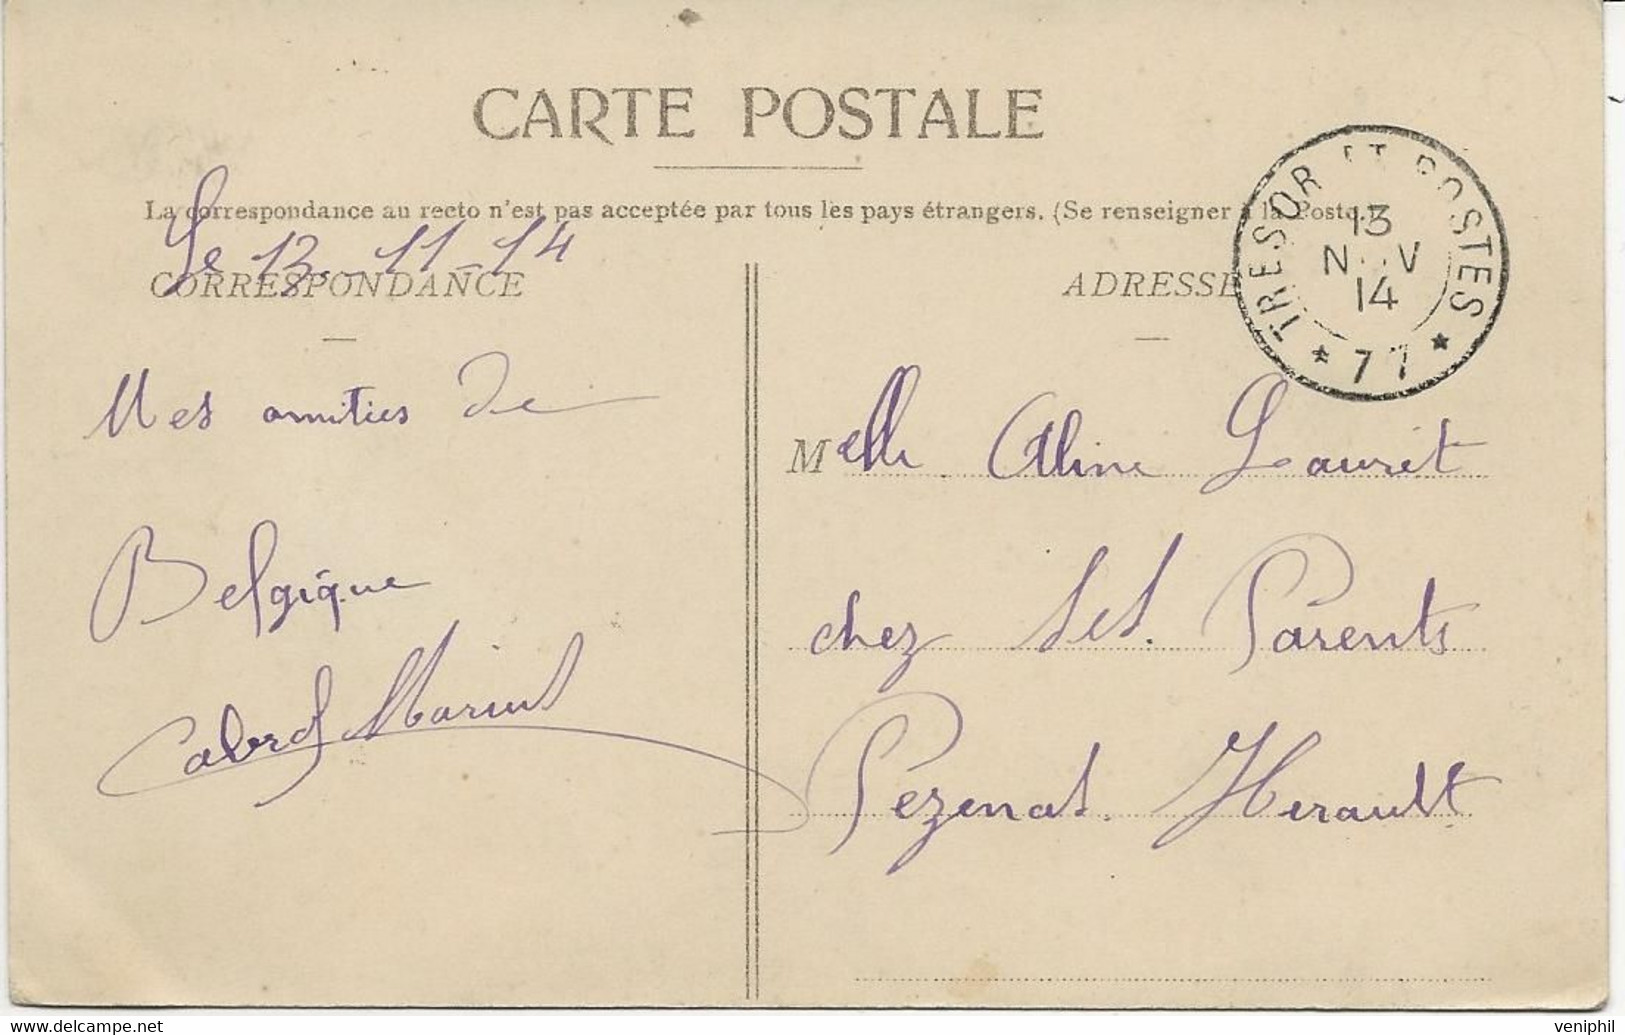 CARTE POSTALE
La correspondance au recto n'est pas acceptée par tous les pays étrangers. (Se renseigner à la Poste.)
Le 13. 11-14
CORRESPONDANCE
ADRESSE
TRESOR ET POSTES
13
NOV
14
* 77 *
Mes amities de
Belgique
Cabrol Marius
Melle Aline Lauret
chez ses. Parents
Pezenas. Herault
delcampe.net
veniphil